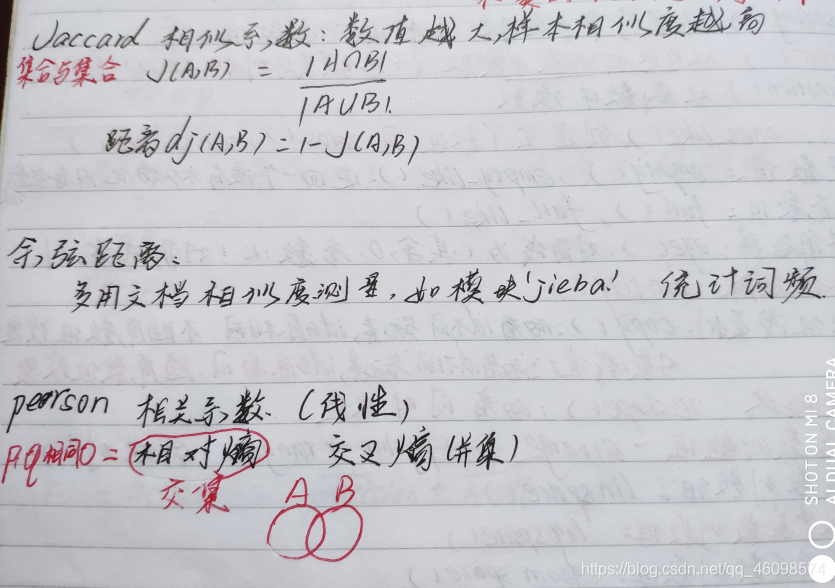 Jaccard 相似系数：数值越大，样本相似度越高
集合与集合 J(A,B) = |A∩B| / |A∪B|.
距离dj(A,B)=1-J(A,B)
余弦距离：
多用文档相似度测量，如模块'jieba' 统计词频.
pearson 相关系数.（线性）
p,q相同0=相对熵 交叉熵(并集)
交集 A B
SHOT ON MI 8
AI DUAL CAMERA
https://blog.csdn.net/qq_46098574